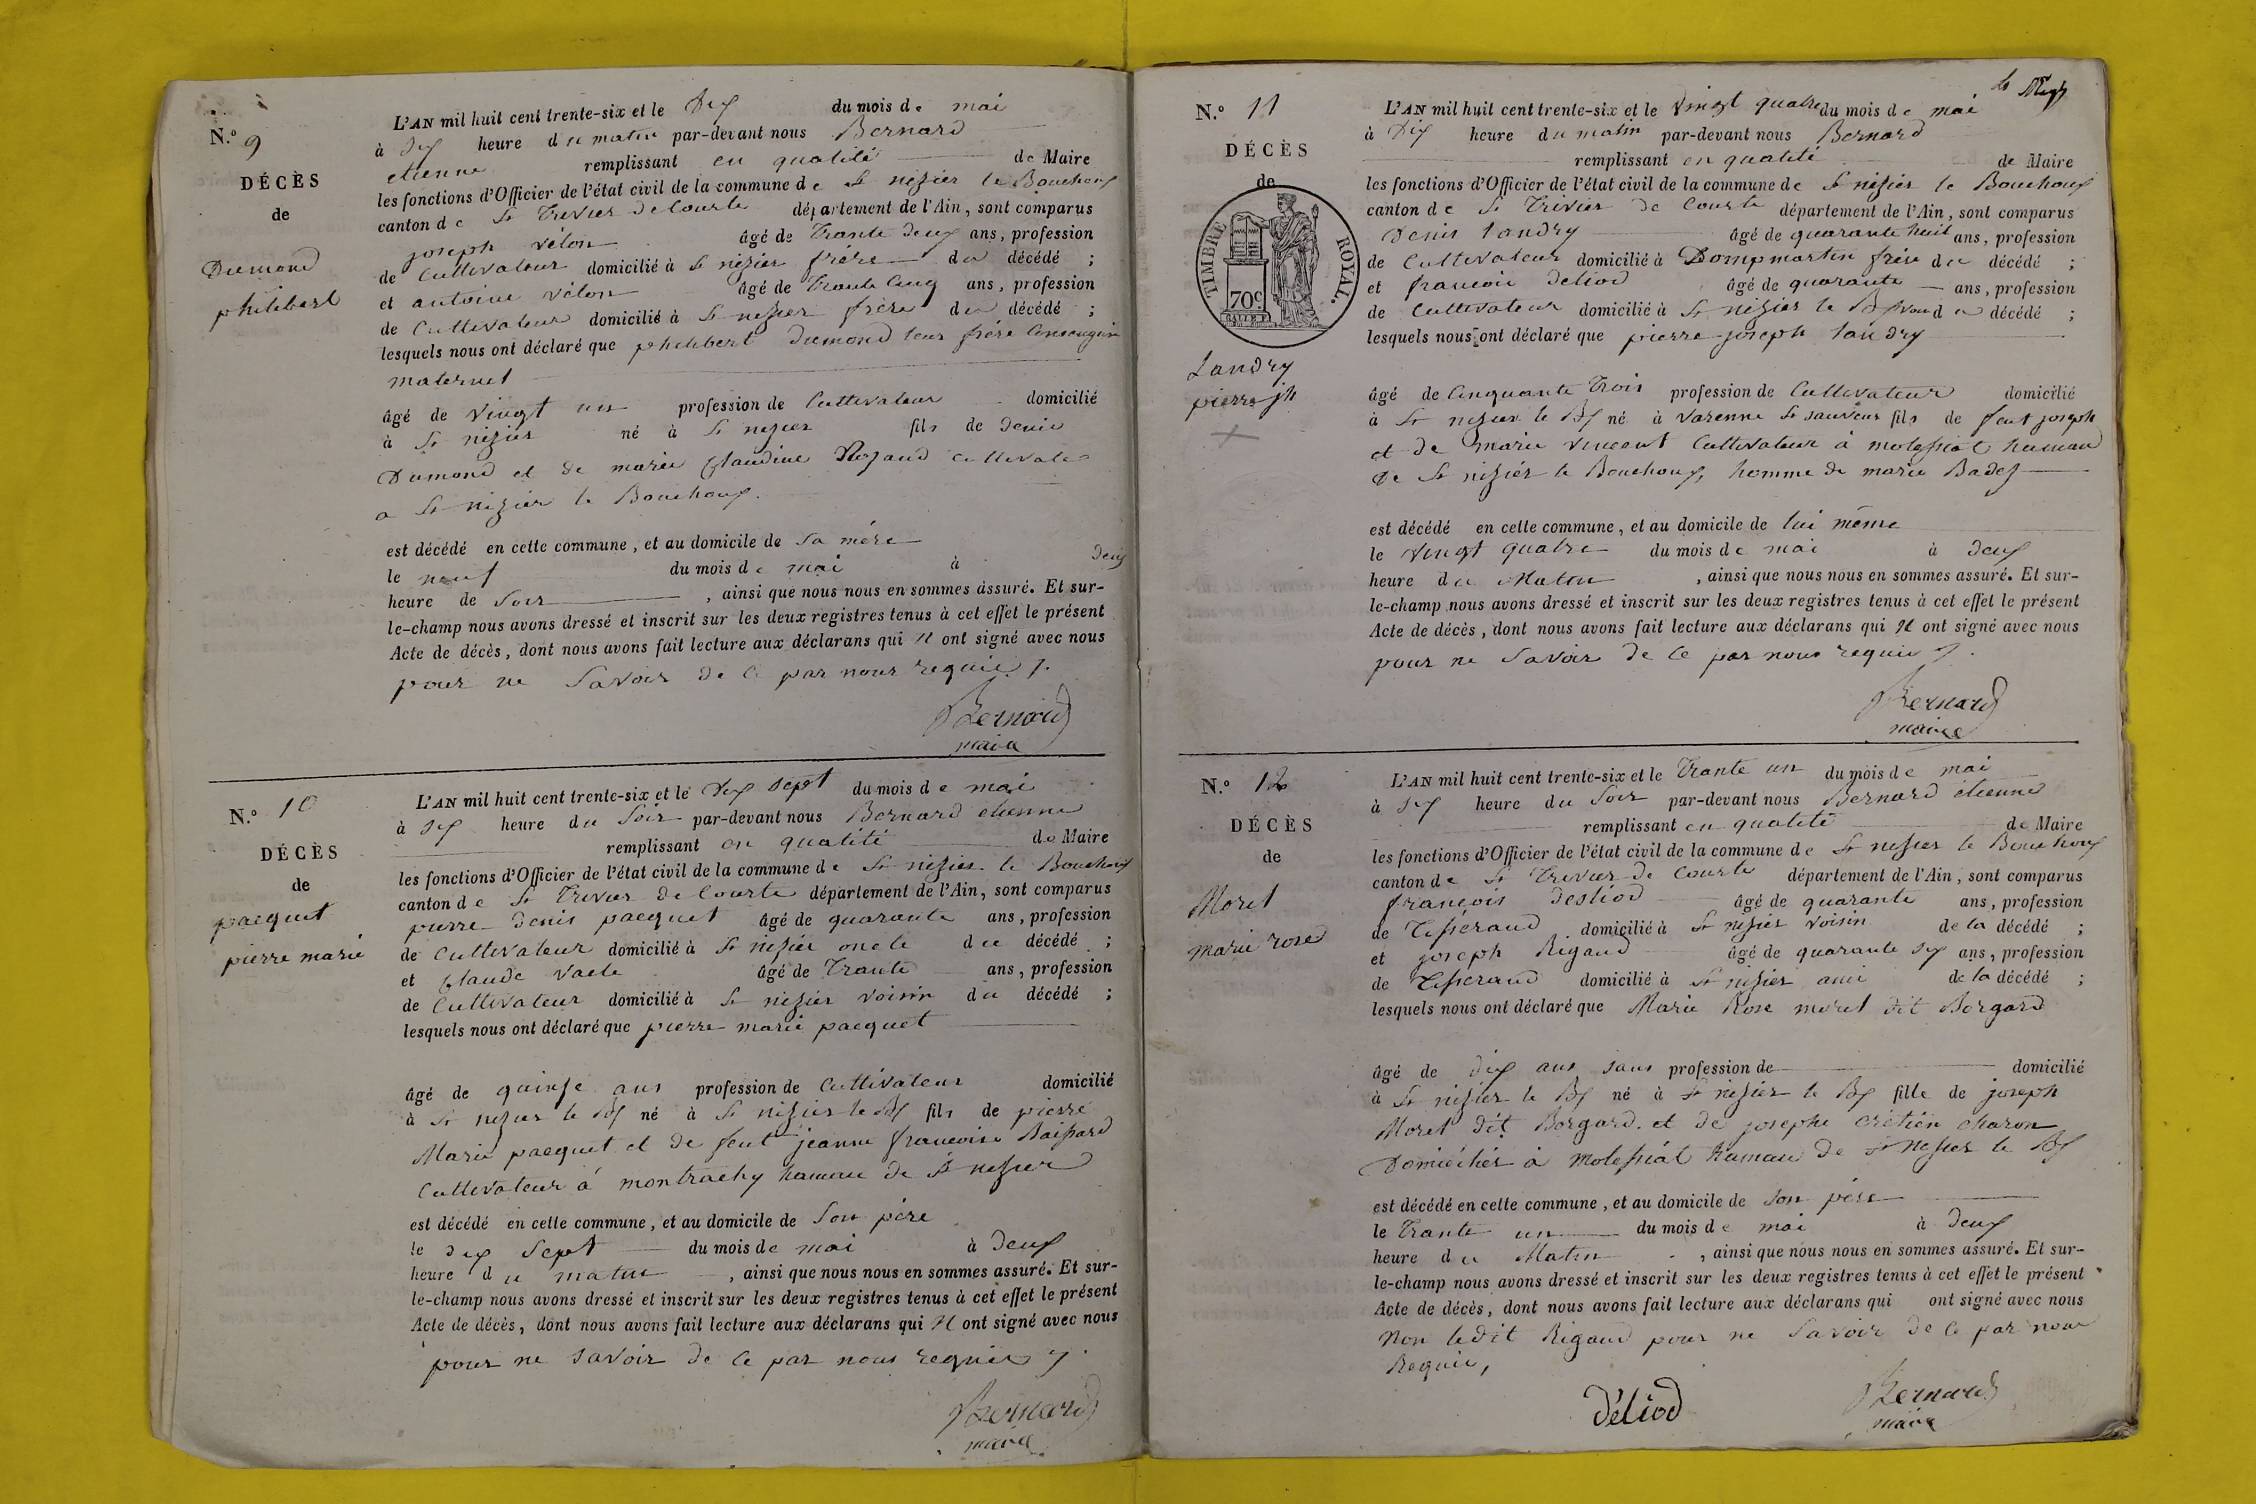 N.o 9
DÉCÈS
de
Dumond
philibert
L'AN mil huit cent trente-six et le Dix du mois de mai
à dix heure du matin par-devant nous Bernard
etienne remplissant en qualité de Maire
les fonctions d'Officier de l'état civil de la commune de St nizier le Bouchoux
canton de St Trivier de Courte département de l'Ain, sont comparus
joseph vélon âgé de Trante deux ans, profession
de Cultivateur domicilié à St nizier frère du décédé ;
et antoine vélon âgé de Trante Cinq ans, profession
de Cultivateur domicilié à St nizier frère du décédé ;
lesquels nous ont déclaré que philibert Dumond leur frère Consanguin
maternel
âgé de vingt un profession de Cultivateur domicilié
à St nizier né à St nizier fils de denis
Dumond et de marie Claudine cultivateur
a St nizier le Bouchoux.
est décédé en cette commune, et au domicile de sa mère
le neuf du mois de mai à deux
heure de soir , ainsi que nous nous en sommes assuré. Et sur-
le-champ nous avons dressé et inscrit sur les deux registres tenus à cet effet le présent
Acte de décès, dont nous avons fait lecture aux déclarans qui N ont signé avec nous
pour ne savoir de ce par nous requis
Bernard
maire
N.o 10
DÉCÈS
de
pacquet
pierre marie
L'AN mil huit cent trente-six et le dix sept du mois de mai
à six heure du Soir par-devant nous Bernard etienne
remplissant en qualité de Maire
les fonctions d'Officier de l'état civil de la commune de St nizier le Bouchoux
canton de St Trivier de Courte département de l'Ain, sont comparus
pierre denis pacquet âgé de quarante ans, profession
de Cultivateur domicilié à St nizier oncle du décédé ;
et Claude âgé de Trante ans, profession
de Cultivateur domicilié à St nizier voisin du décédé ;
lesquels nous ont déclaré que pierre marie pacquet
âgé de quinze ans profession de Cultivateur domicilié
à St nizier le Bx né à St nizier le Bx fils de pierre
Marie pacquet et de feut jeanne francoise
Cultivateur à montrachy hamau de St nizier
est décédé en cette commune, et au domicile de Son père
le dix Sept du mois de mai à deux
heure du matin , ainsi que nous nous en sommes assuré. Et sur-
le-champ nous avons dressé et inscrit sur les deux registres tenus à cet effet le présent
Acte de décès, dont nous avons fait lecture aux déclarans qui N ont signé avec nous
pour ne savoir de ce par nous requis
Bernard
maire
N.o 11
DÉCÈS
de
TIMBRE ROYAL.
70c
Landry
pierre jh
L'AN mil huit cent trente-six et le vingt quatre du mois de mai
à Dix heure du matin par-devant nous Bernard
remplissant en qualité de Maire
les fonctions d'Officier de l'état civil de la commune de St nizier le Bouchoux
canton de St Trivier de Courte département de l'Ain, sont comparus
Denis Landry âgé de quarante huit ans, profession
de Cultivateur domicilié à Dompmartin frère du décédé ;
et francois déliod âgé de quarante ans, profession
de Cultivateur domicilié à St nizier le Bx du décédé ;
lesquels nous ont déclaré que pierre joseph Landry
âgé de Cinquante Trois profession de Cultivateur domicilié
à St nizier le Bx né à varenne St sauveur fils de feut joseph
et de marie vincent Cultivateur à molessiat hamau
De St nizier le Bouchoux, homme de marie Badez
est décédé en cette commune, et au domicile de lui même
le vingt quatre du mois de mai à deux
heure du Matin , ainsi que nous nous en sommes assuré. Et sur-
le-champ nous avons dressé et inscrit sur les deux registres tenus à cet effet le présent
Acte de décès, dont nous avons fait lecture aux déclarans qui N ont signé avec nous
pour ne savoir de ce par nous requis
Bernard
maire
N.o 12
DÉCÈS
de
Moret
marie rose
L'AN mil huit cent trente-six et le Trante un du mois de mai
à six heure du Soir par-devant nous Bernard etienne
remplissant en qualité de Maire
les fonctions d'Officier de l'état civil de la commune de St nizier le Bouchoux
canton de St Trivier de Courte département de l'Ain, sont comparus
françois desliod âgé de quarante ans, profession
de Tisserand domicilié à St nizier voisin de la décédé ;
et joseph Rigaud âgé de quarante six ans, profession
de Tisserand domicilié à St nizier ami de la décédé ;
lesquels nous ont déclaré que Marie Rose moret dit Borgard
âgé de dix ans sans profession de domicilié
à St nizier le Bx né à St nizier le Bx fille de joseph
Moret dit Borgard et de josephe crétien charon
Domiciliés à molessiat hamau de St nizier le Bx
est décédé en cette commune, et au domicile de Son père
le Trante un du mois de mai à deux
heure du Matin , ainsi que nous nous en sommes assuré. Et sur-
le-champ nous avons dressé et inscrit sur les deux registres tenus à cet effet le présent
Acte de décès, dont nous avons fait lecture aux déclarans qui ont signé avec nous
Non ledit Rigaud pour ne Savoir de ce par nous
Requis,
déliod
Bernard
maire